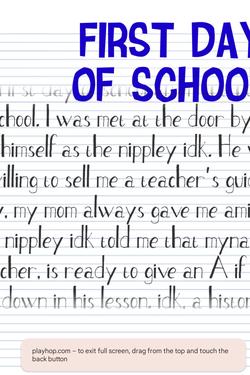 FIRST DAY
OF SCHOO
first day of school
chool. I was met at the door by
himself as the nippley idk. He w
villing to sell me a teacher's gui
y, my mom always gave me ami
nippley idk told me that myna
cher, is ready to give an A if
down in his lesson. idk, a histor
playhop.com – to exit full screen, drag from the top and touch the
back button